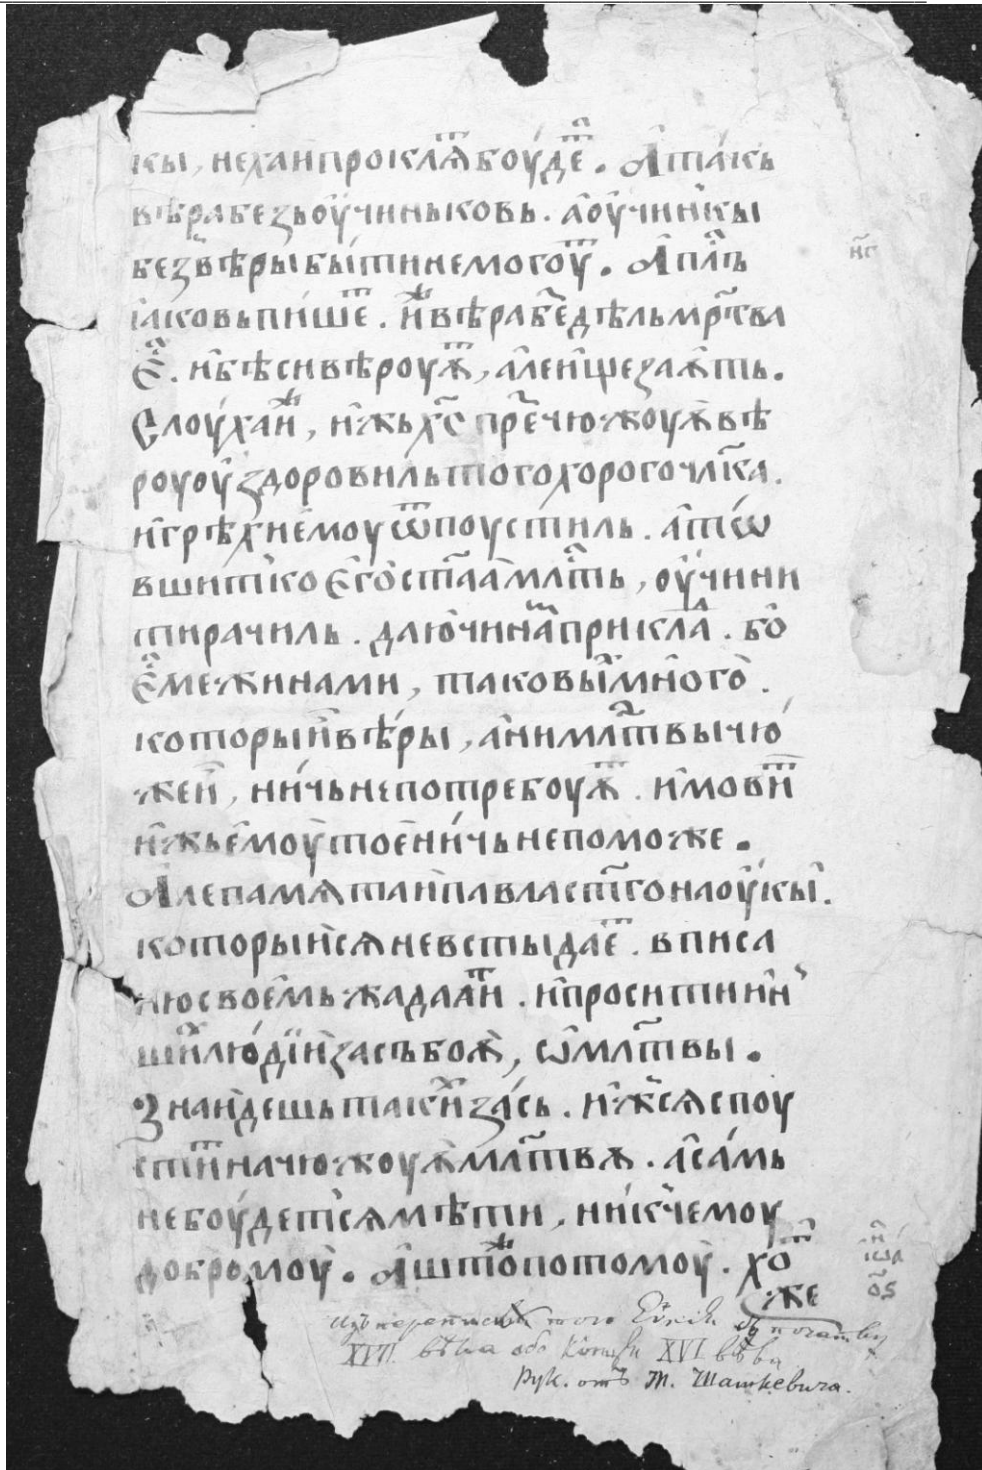 кы, нехаи проклѧⷮ боу́деⷮ. А҆ та́къ
вѣра безъ оу҆чинъковъ. а҆ оу҆чин̾кы
без̾ вѣры бы́ти не могоуⷮ. А҆ па́къ
іаковъ пи́шеⷮ. иⷤ вѣра беⷥ дѣлъ мр҃тва
єⷭ҇. и҆ бѣси вѣроуѫⷮ, але и҆ ще заѧть.
Слоу́хаиⷤ, и҆жь хс҃ прⷭ҇ечюжоуѫ вѣ
роу оу҆здоровилъ того хорого чл҃ка.
и҆ грѣхи е҆моу ѿпоустиль. а҆ тѡ
вшитко є҆го ст҃аа млⷭ҇ть, оу҆чини
ти рачиль. даючи наⷨ приклаⷣ. бо
єⷭ҇ межи нами, таковыⷯ много.
которыи вѣры, а҆ни млт҃вы чю
жеи, ничь не потребоуѫⷮ. и҆ мовиⷮ
и҆жь е҆моу тое ничь не поможе.
Але памѧтаи павла ст҃го наоу҆кы.
которыи сѧ не встыдаеⷮ. в писа
нюсвоемь жадааⷮи. и҆ просити и҆н̾
шиⷯ лю́дїи за събоѫ, ѡ҆ млт҃вы.
Знаидешь такиⷯ за́сь. и҆ж̾ сѧ споу
стиⷮ на чюжоуѫ млт҃вѫ. а҆ са́мь
не боу́детсѧ мѣти, ник̾чемоу
добромоу. А҆ штоⷤ по томоу. хоⷮ
же
нг҃
и҆ іѡа ѻ҃ѕ
XVII вѣка або конця XVI вѣка
Рук. отъ М. Шашкевича.